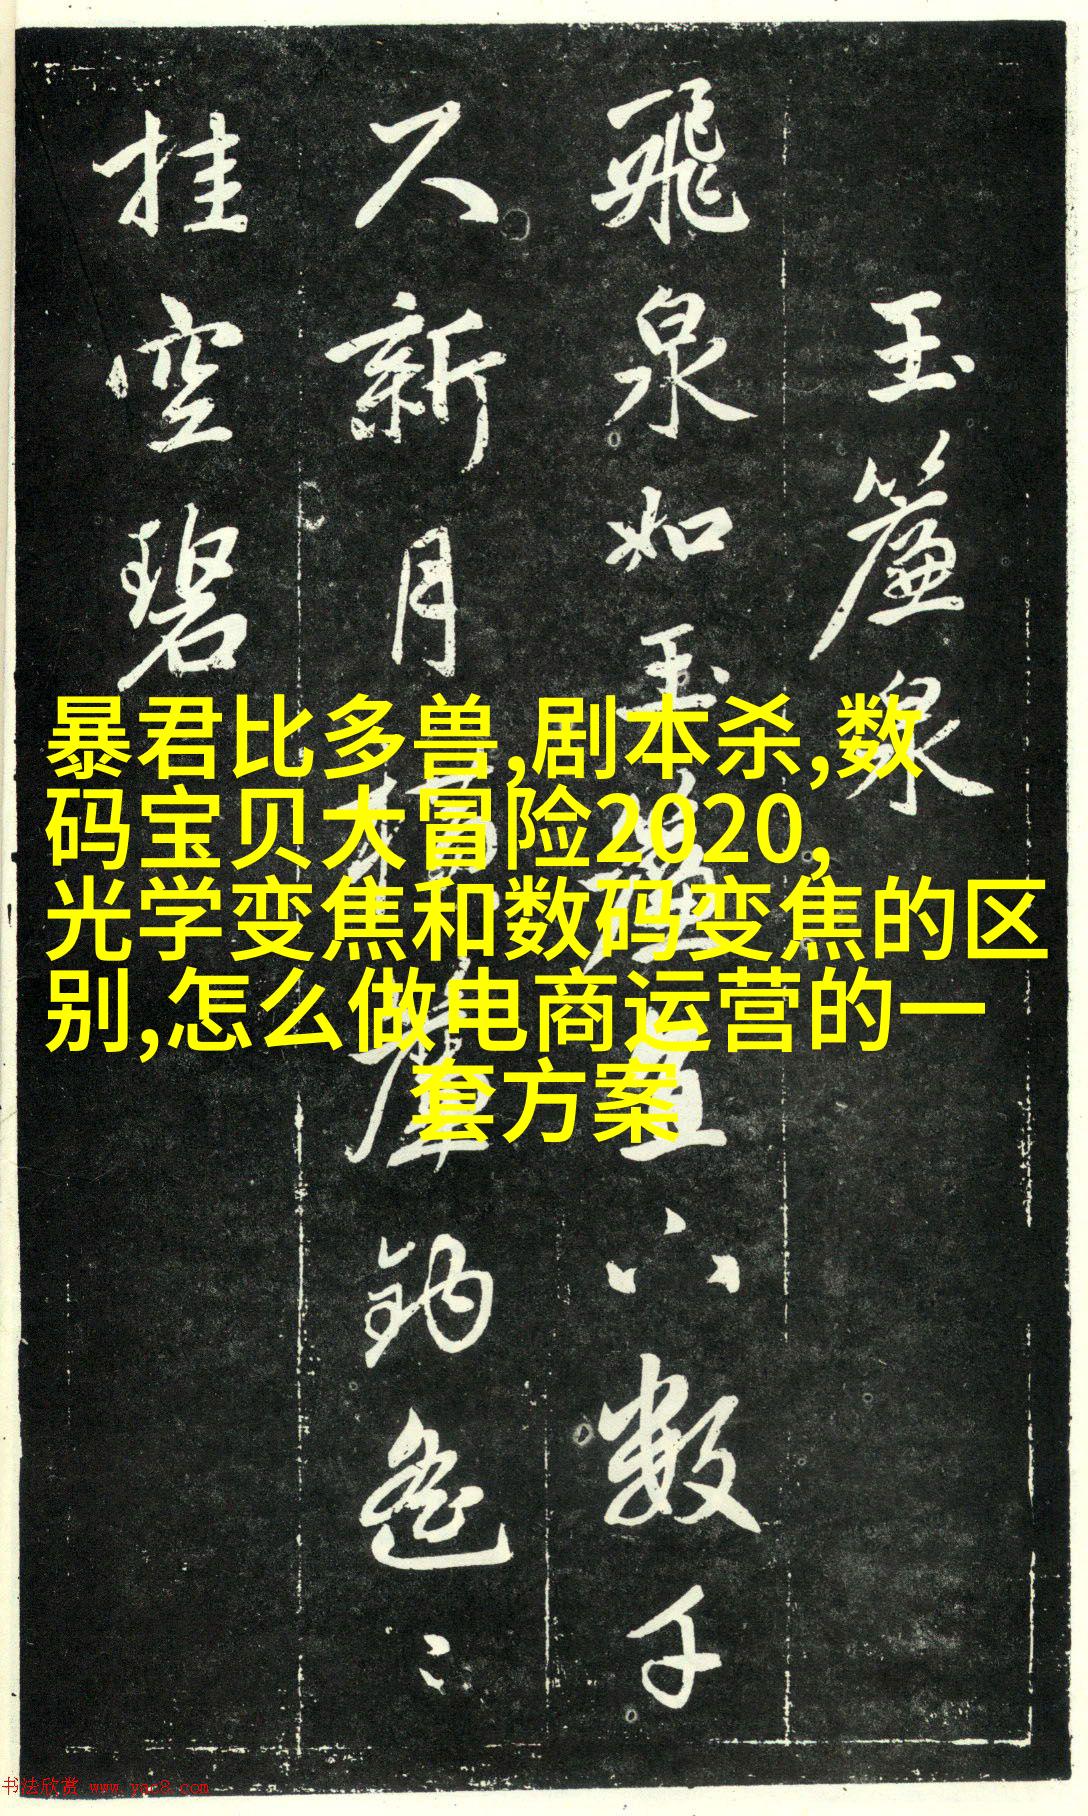 玉簾泉
飛泉如玉簾直下數千
尺新月橫簾鈎遙〻
挂空碧
暴君比多兽,剧本杀,数
码宝贝大冒险2020,
光学变焦和数码变焦的区
别,怎么做电商运营的一
套方案
书法欣赏 www.yac8.com